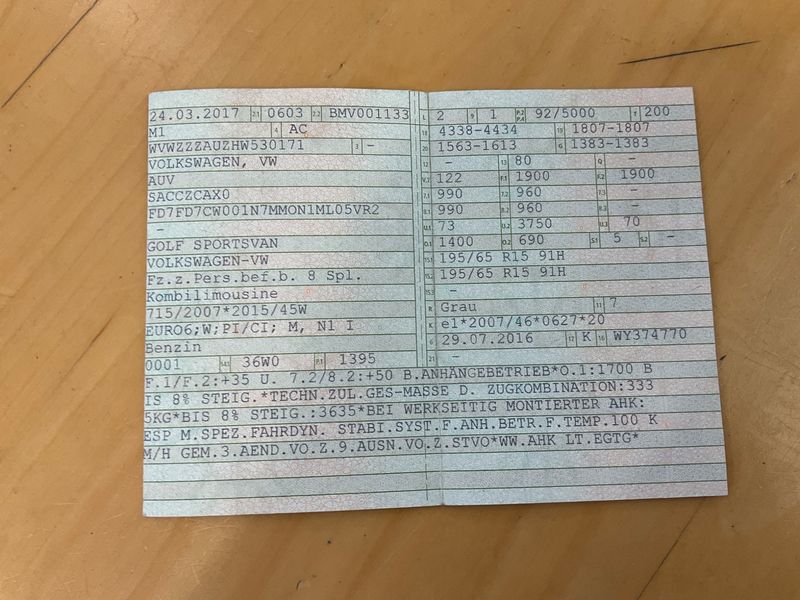 24.03.2017 2.1 0603 2.2 BMV001133
M1 4 AC
WVWZZZAUZHW530171 3 -
VOLKSWAGEN, VW
AUV
SACCZCAX0
FD7FD7CW001N7MMON1ML05VR2
-
GOLF SPORTSVAN
VOLKSWAGEN-VW
Fz.z.Pers.bef.b. 8 Spl.
Kombilimousine
715/2007*2015/45W
EURO6;W;PI/CI; M, N1 I
Benzin
0001 36W0 P.1 1395
L 2 9 1 P.2 P.4 92/5000 T 200
18 4338-4434 19 1807-1807
20 1563-1613 G 1383-1383
12 - 13 80 Q -
V.7 122 F.1 1900 F.2 1900
7.1 990 7.2 960 7.3 -
8.1 990 8.2 960 8.3 -
U.1 73 U.2 3750 U.3 70
O.1 1400 O.2 690 S.1 5 S.2 -
15.1 195/65 R15 91H
15.2 195/65 R15 91H
15.3 -
R Grau 11 7
K e1*2007/46*0627*20
6 29.07.2016 17 K 16 WY374770
21 -
F.1/F.2:+35 U. 7.2/8.2:+50 B.ANHÄNGEBETRIEB*O.1:1700 B
IS 8% STEIG.*TECHN.ZUL.GES-MASSE D. ZUGKOMBINATION:333
5KG*BIS 8% STEIG.:3635*BEI WERKSEITIG MONTIERTER AHK:
ESP M.SPEZ.FAHRDYN. STABI.SYST.F.ANH.BETR.F.TEMP.100 K
M/H GEM.3.AEND.VO.Z.9.AUSN.VO.Z.STVO*WW.AHK LT.EGTG*